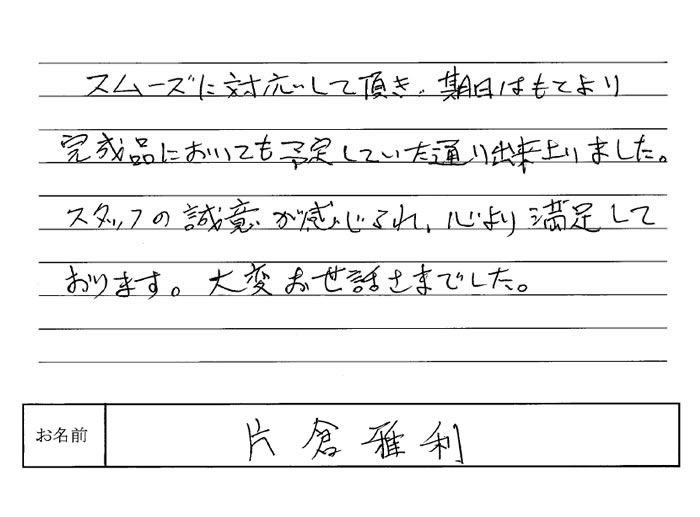 スムーズに対応して頂き、期日はもとより
完成品においても予定していた通り出来上りました。
スタッフの誠意が感じられ、心より満足して
おります。大変お世話さまでした。
お名前 片倉雅利